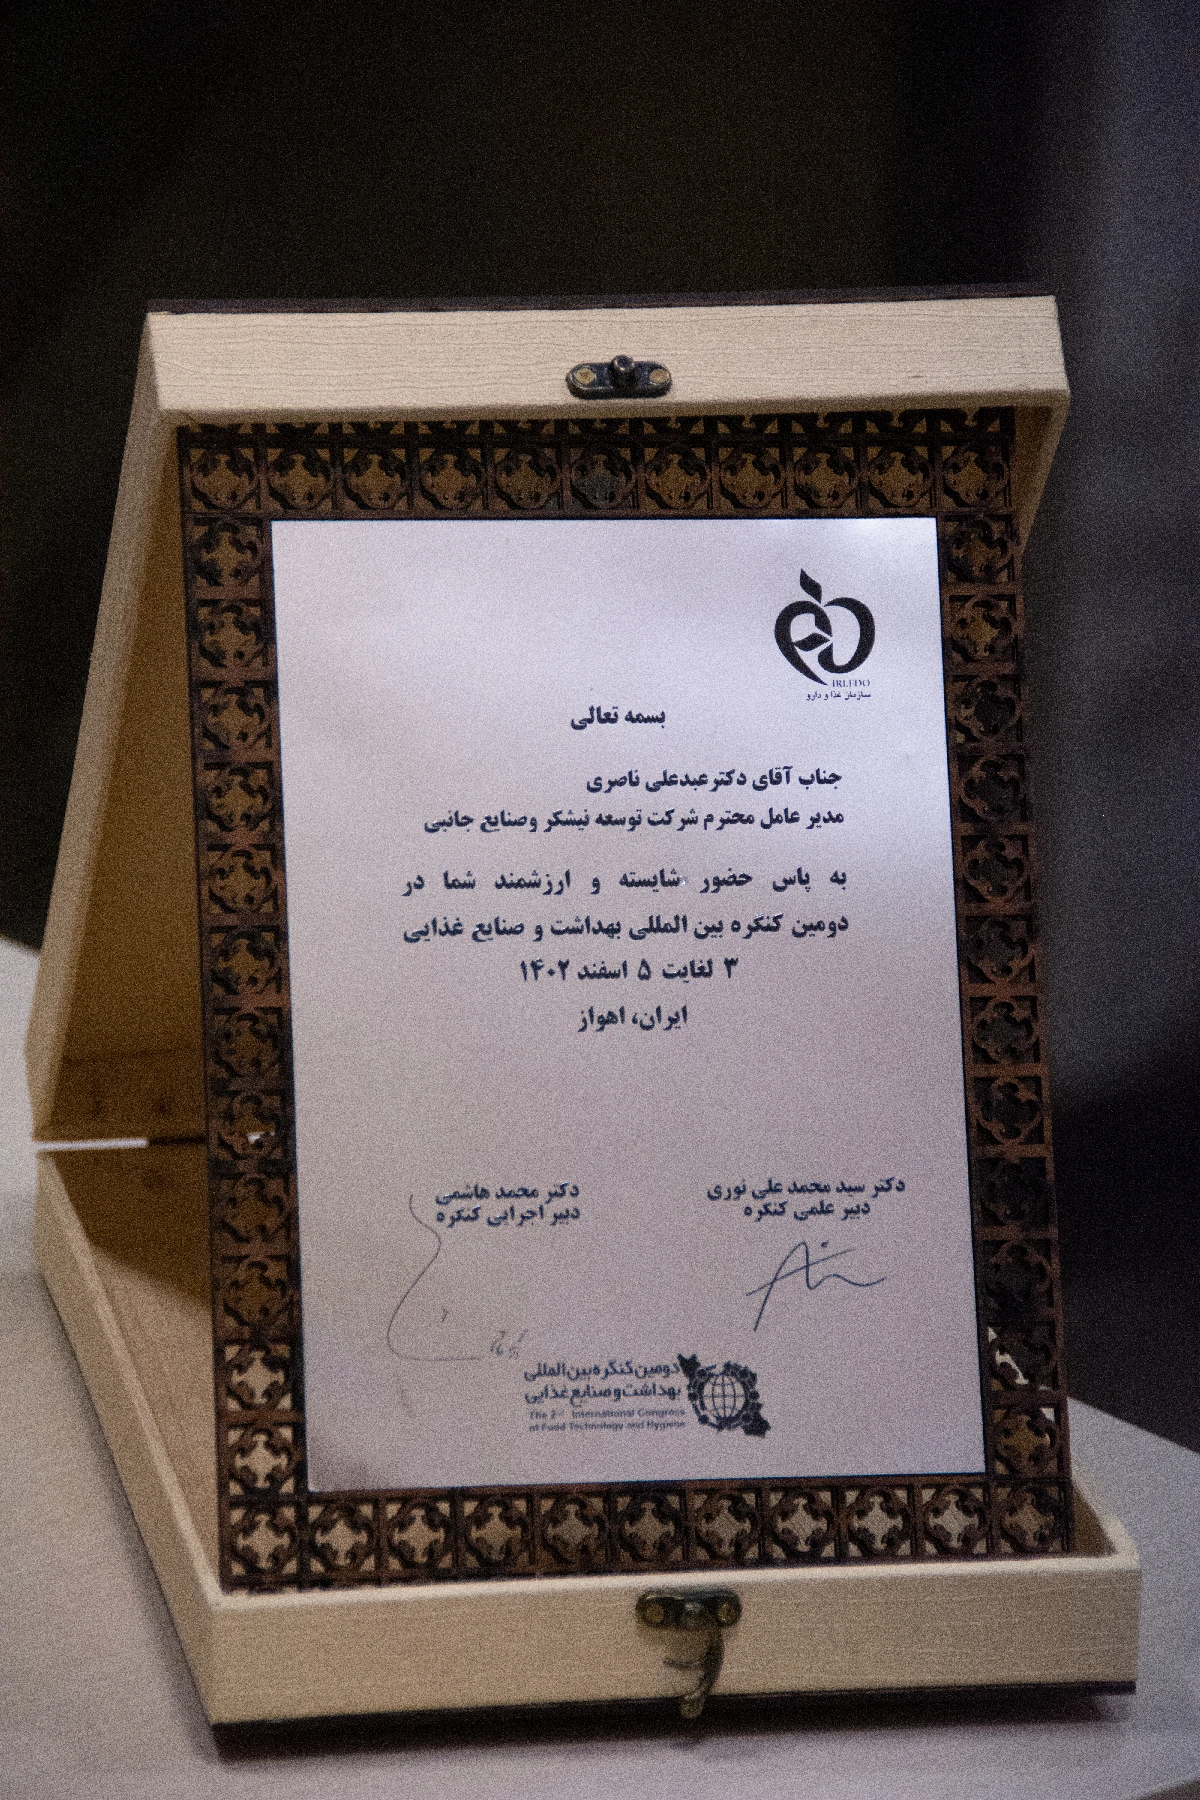 IR.I.FDO
سازمان غذا و دارو
بسمه تعالی
جناب آقای دکترعبدعلی ناصری
مدیر عامل محترم شرکت توسعه نیشکر وصنایع جانبی
به پاس حضور شایسته و ارزشمند شما در
دومین کنگره بین المللی بهداشت و صنایع غذایی
۳ لغایت ۵ اسفند ۱۴۰۲
ایران، اهواز
دکتر سید محمد علی نوری
دبیر علمی کنگره
دکتر محمد هاشمی
دبیر اجرایی کنگره
دومین کنگره بین المللی
بهداشت و صنایع غذایی
The 2nd International Congress
of Food Technology and Hygiene